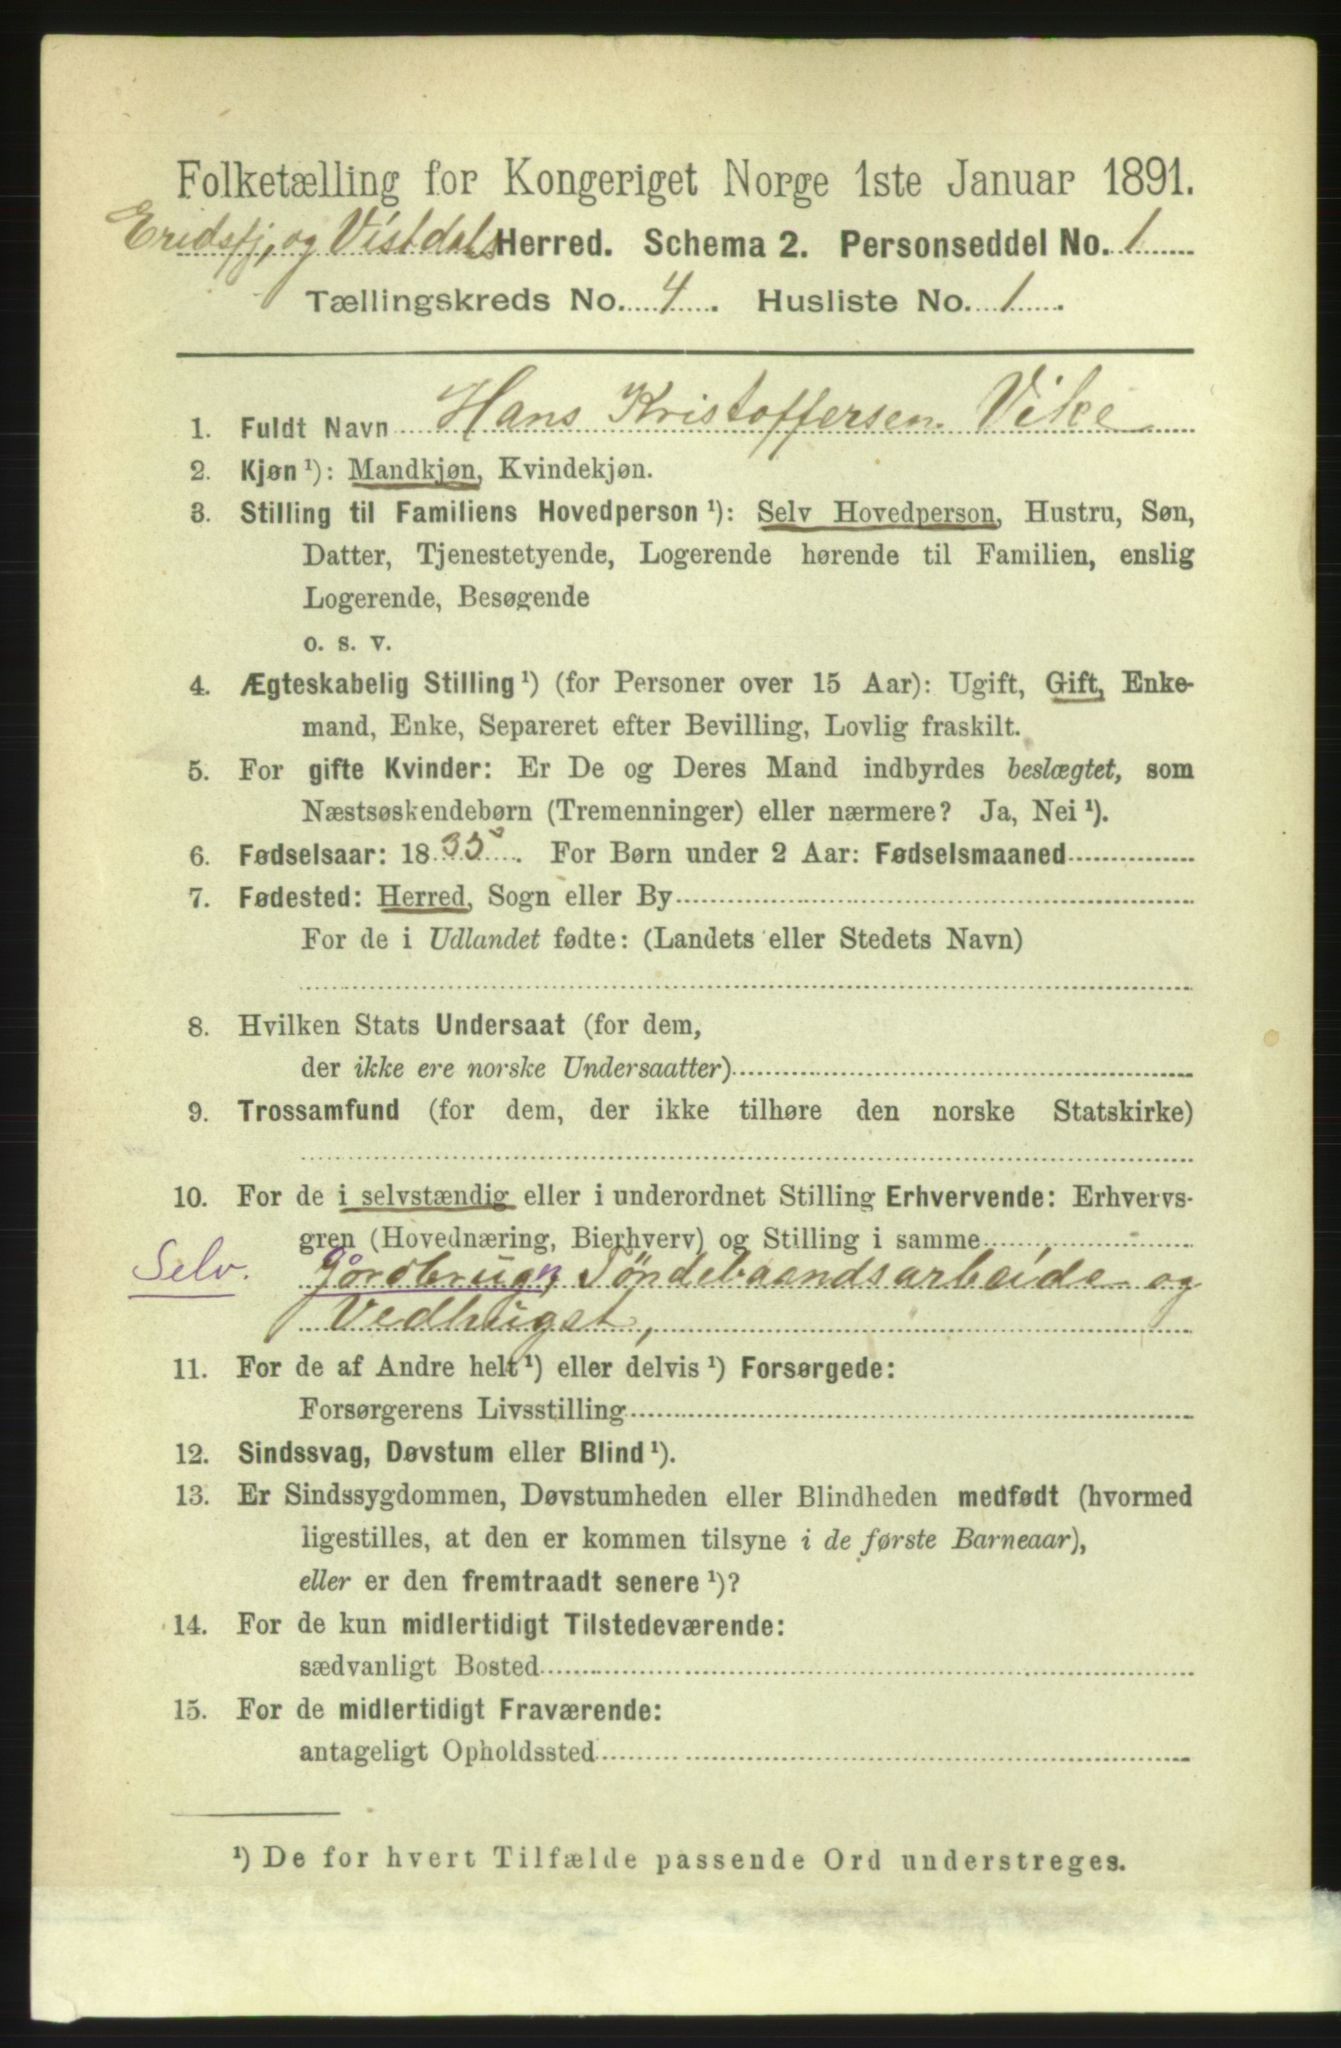 Folketælling for Kongeriget Norge 1ste Januar 1891.
Eridsfj, og Vistdals Herred. Schema 2. Personseddel No. 1
Tællingskreds No. 4. Husliste No. 1.
1. Fuldt Navn Hans Kristoffersen Vike
2. Kjøn ¹): Mandkjøn, Kvindekjøn.
3. Stilling til Familiens Hovedperson ¹): Selv Hovedperson, Hustru, Søn,
Datter, Tjenestetyende, Logerende hørende til Familien, enslig
Logerende, Besøgende
o. s. v.
4. Ægteskabelig Stilling ¹) (for Personer over 15 Aar): Ugift, Gift, Enke-
mand, Enke, Separeret efter Bevilling, Lovlig fraskilt.
5. For gifte Kvinder: Er De og Deres Mand indbyrdes beslægtet, som
Næstsøskendebørn (Tremenninger) eller nærmere? Ja, Nei ¹).
6. Fødselsaar: 1835. For Børn under 2 Aar: Fødselsmaaned
7. Fødested: Herred, Sogn eller By
For de i Udlandet fødte: (Landets eller Stedets Navn)
8. Hvilken Stats Undersaat (for dem,
der ikke ere norske Undersaatter)
9. Trossamfund (for dem, der ikke tilhøre den norske Statskirke)
10. For de i selvstændig eller i underordnet Stilling Erhvervende: Erhvervs-
gren (Hovednæring, Bierhverv) og Stilling i samme
Selv. Gårdbrug, Töndebaandsarbeide og
Vedhuget,
11. For de af Andre helt ¹) eller delvis ¹) Forsørgede:
Forsørgerens Livsstilling
12. Sindssvag, Døvstum eller Blind ¹).
13. Er Sindssygdommen, Døvstumheden eller Blindheden medfødt (hvormed
ligestilles, at den er kommen tilsyne i de første Barneaar),
eller er den fremtraadt senere ¹)?
14. For de kun midlertidigt Tilstedeværende:
sædvanligt Bosted
15. For de midlertidigt Fraværende:
antageligt Opholdssted
¹) De for hvert Tilfælde passende Ord understreges.